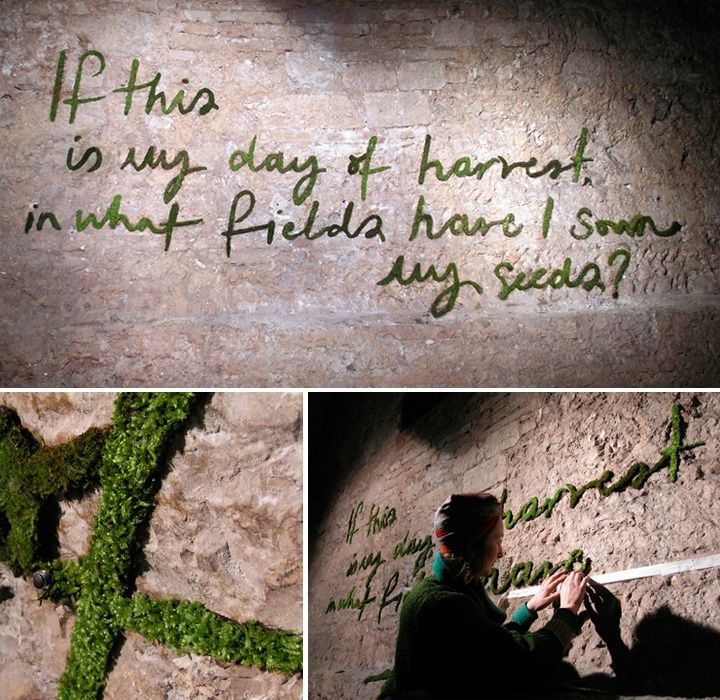 If this
is my day of harvest,
in what fields have I sown
my seeds?
If this
is my day
harvest
in what fi